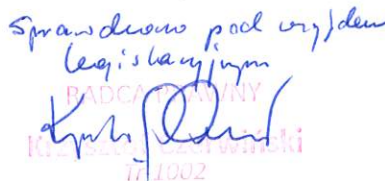 Sprawdzono pod względem
legislacyjnym
RADCA PRAWNY
Krzysztof Czerwiński
Tr 1002